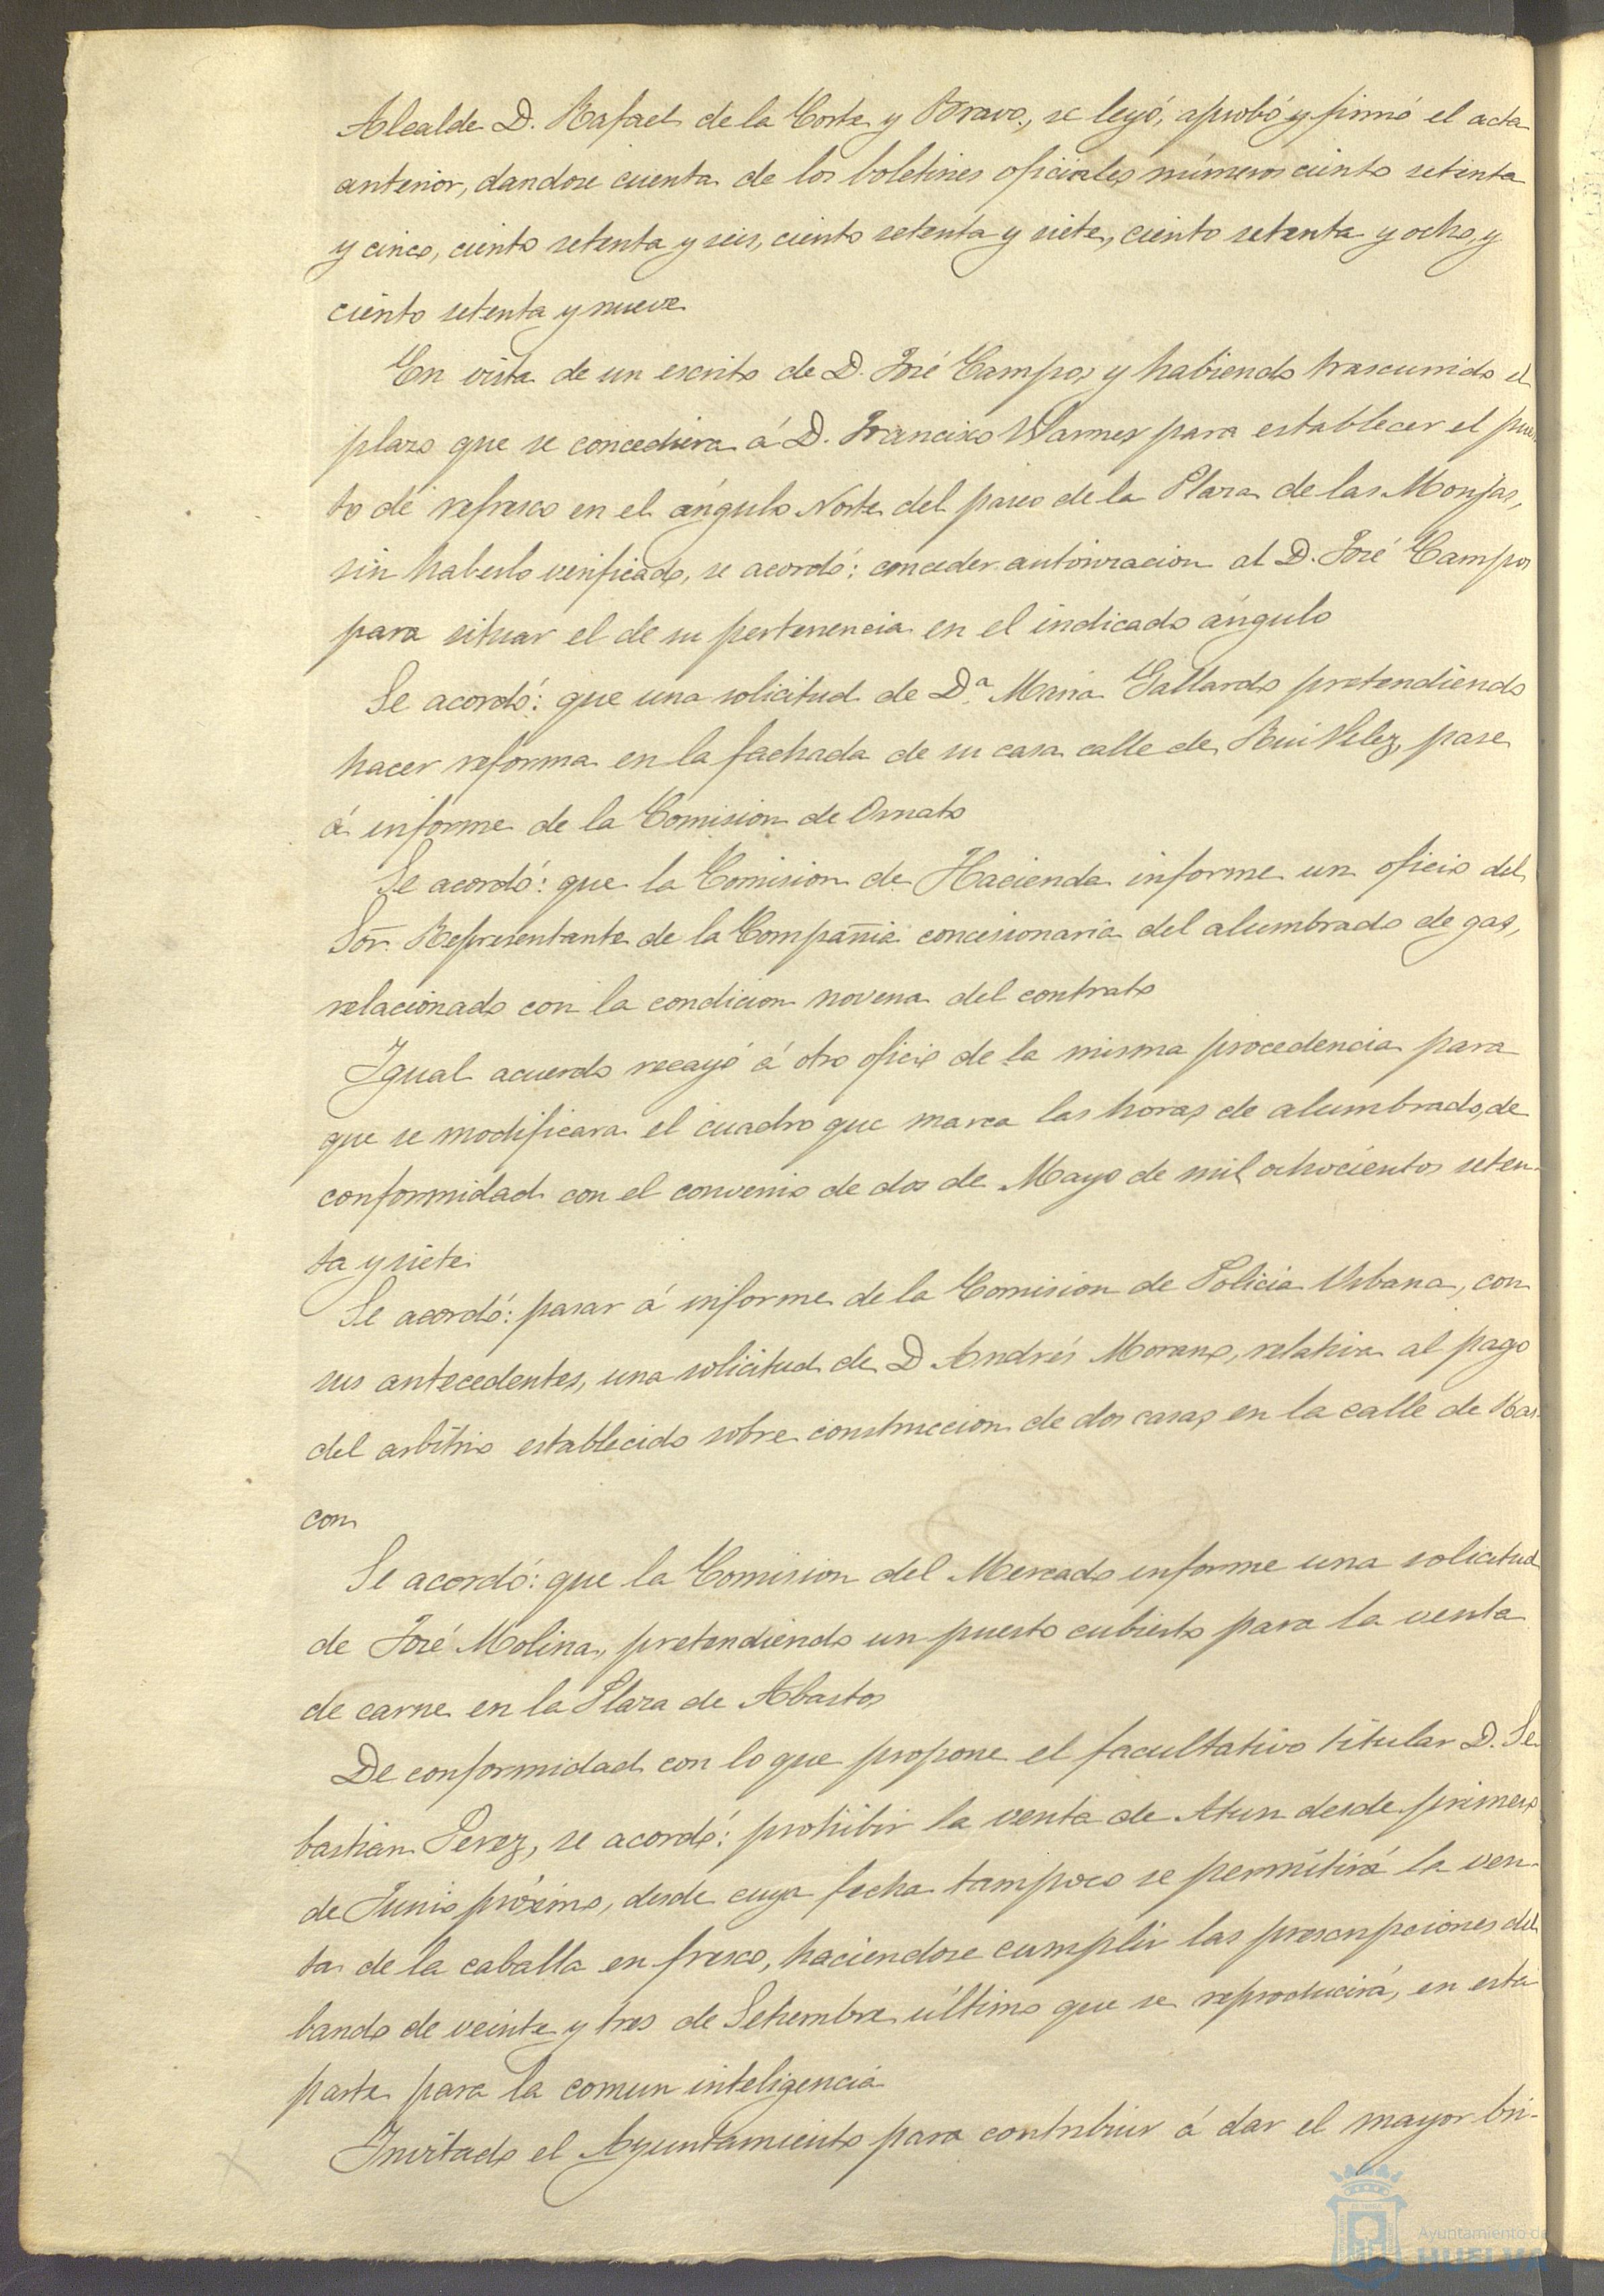 Alcalde D. Rafael de la Corte y Bravo, se leyó, aprobó y firmó el acta
anterior, dandose cuenta de los boletines oficiales números ciento setenta
y cinco, ciento setenta y seis, ciento setenta y siete, ciento setenta y ocho, y
ciento setenta y nueve
En vista de un escrito de D. José Campos y habiendo trascurrido el
plazo que se concediera á D. Francisco Warner para establecer el pues
to de refresco en el ángulo Norte del paseo de la Plaza de las Monjas,
sin haberlo verificado, se acordó: conceder autorizacion al D. José Campos
para situar el de su pertenencia en el indicado ángulo
Se acordó: que una solicitud de Dª. Maria Gallardo pretendiendo
hacer reforma en la fachada de su casa calle de Rui Velez, pase
á informe de la Comision de Ornato
Se acordó: que la Comision de Hacienda informe un oficio del
Sor. Representante de la Compañia concesionaria del alumbrado de gas,
relacionado con la condicion novena del contrato
Igual acuerdo recayó á otro oficio de la misma procedencia para
que se modificara el cuadro que marca las horas de alumbrado, de
conformidad con el convenio de dos de Mayo de mil ochocientos seten-
ta y siete
Se acordó: pasar á informe de la Comision de Policia Urbana, con
sus antecedentes, una solicitud de D Andrés Morano, relativa al pago
del arbitrio establecido sobre construccion de dos casas en la calle de Ras
con
Se acordó: que la Comision del Mercado informe una solicitud
de José Molina, pretendiendo un puesto cubierto para la venta
de carne en la Plaza de Abastos
De conformidad con lo que propone el facultativo titular D. Se
bastian Perez, se acordó: prohibir la venta de Atun desde primero
de Junio próximo, desde cuya fecha tampoco se permitirá la ven-
ta de la caballa en fresco, haciendose cumplir las prescripciones del
bando de veinte y tres de Setiembre último que se reproducirá, en esta
parte para la comun inteligencia
Invitado el Ayuntamiento para contribuir á dar el mayor bri-
Ayuntamiento de
HUELVA